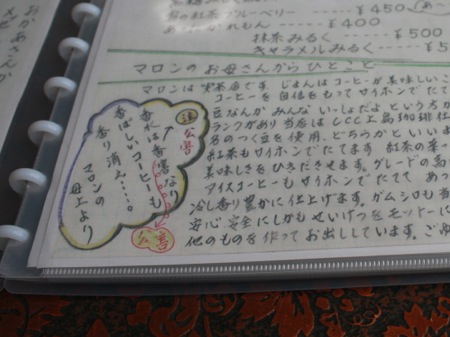 お紅茶ブルーベリー ― ¥450
かれもん ― ¥400
抹茶みるく ― ¥500
キャラメルみるく ― ¥5
マロンのお母さんからひとこと
マロンは喫茶店です。じまんはコーヒーが美味しいこ
コーヒーを自信をもってサイホンでたて
豆なんかみんないっしょだよという方か
ランクがあり当店はUCC上島珈琲社
名のつく豆を使用、どちらかといいま
紅茶もサイホンでたてます 紅茶の葉っ
美味しさをひきださせます。グレードの高
アイスコーヒーもサイホンでたてて あっ
冷し香り豊かに仕上げます。ガムシロも当
安心安全にしかもせいけつをモットーに
他のものを作ってお出ししています。ごゆ
香水は香害なり
香ばしいコーヒーも
香り消え……。
マロンの
母上より
公害
公害